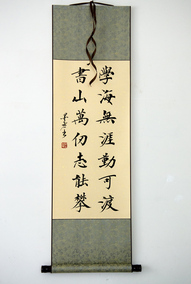 學海無涯勤可渡
書山萬仞志能攀